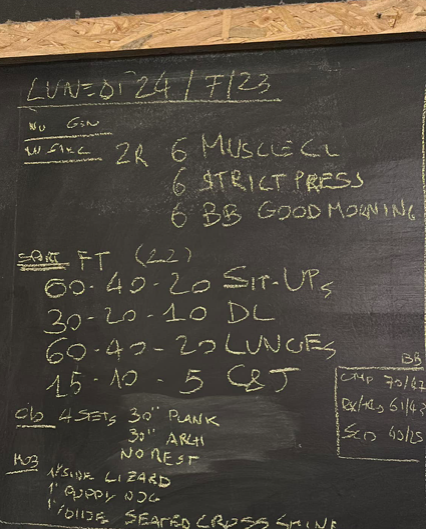 LUNEDI 24/7/23
WU GEN
W SPEC 2R 6 MUSCLE CL
6 STRICT PRESS
6 BB GOOD MORNING
FT (22)
60-40-20 SIT-UPs
30-20-10 DL
60-40-20 LUNGES
15-10-5 C&J
4 SETS 30" PLANK
30" ARCH
NO REST
MOB 1'/SIDE LIZARD
1' PUPPY DOG
1'/SIDE SEATED CROSS SHINE
BB
70/47
61/43
SCD 40/25